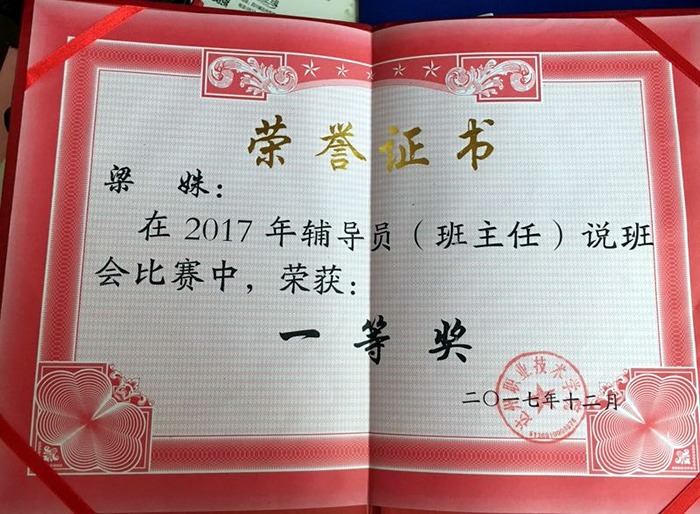 荣誉证书
梁姝：
在2017年辅导员（班主任）说班
会比赛中，荣获：
一等奖
达州职业技术学院
二〇一七年十二月